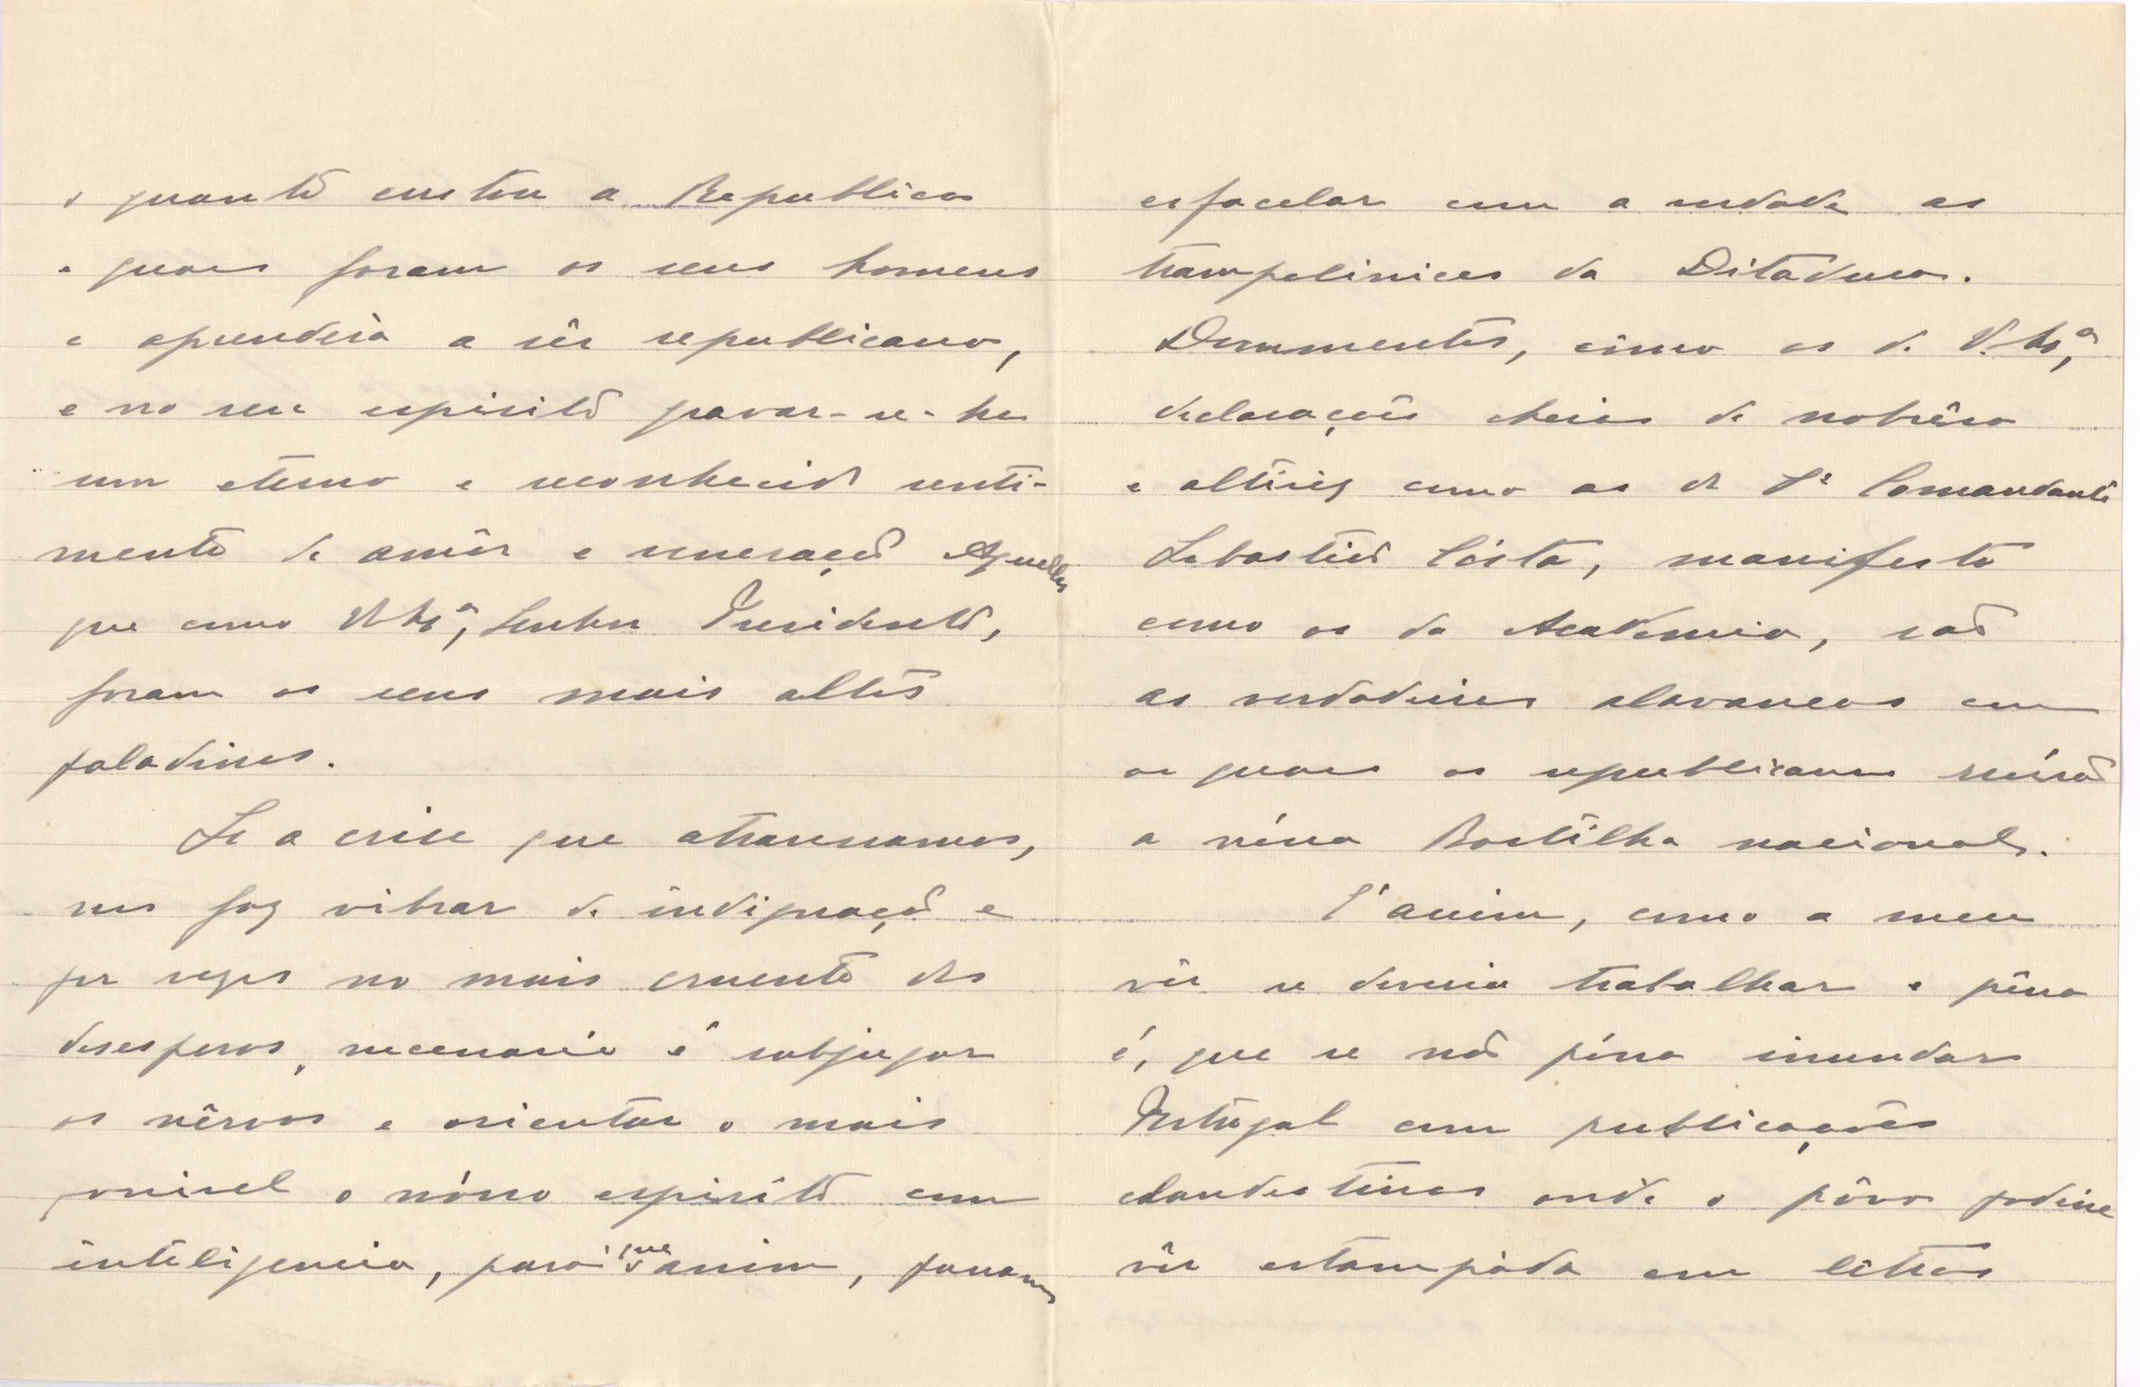 o quanto custou a Republica
e quais foram os seus homens
e aprenderá a sêr republicano,
e no seu espirito gravar-se-ha
um eterno e reconhecido senti-
mento de amôr e veneração Aquelles
que como V. Ex.ª, Senhor Presidente,
foram os seus mais altos
paladinos.
Se a crise que atravessamos,
nos faz vibrar de indignação e
por vezes no mais cruento dos
desesperos, necessario é subjugar
os nêrvos e orientar o mais
possivel o nósso espirito com
inteligencia, para que assim, possamos
esfacelar com a verdade as
trampolinices da Ditadura.
Documentos, cómo os de V. Ex.ª,
declarações cheias de nobrêsa
e altivez como as do Comandante
Sebastião Cósta, manifesto
como os da Academia, são
as verdadeiras alavancas com
as quais os republicanos
a nóssa Bastilha nacional.
É assim, como a meu
vêr se deveria trabalhar e pêna
é, que se não póssa inundar
Portugal com publicações
clandestinas onde o pôvo podesse
vêr estampáda em letras